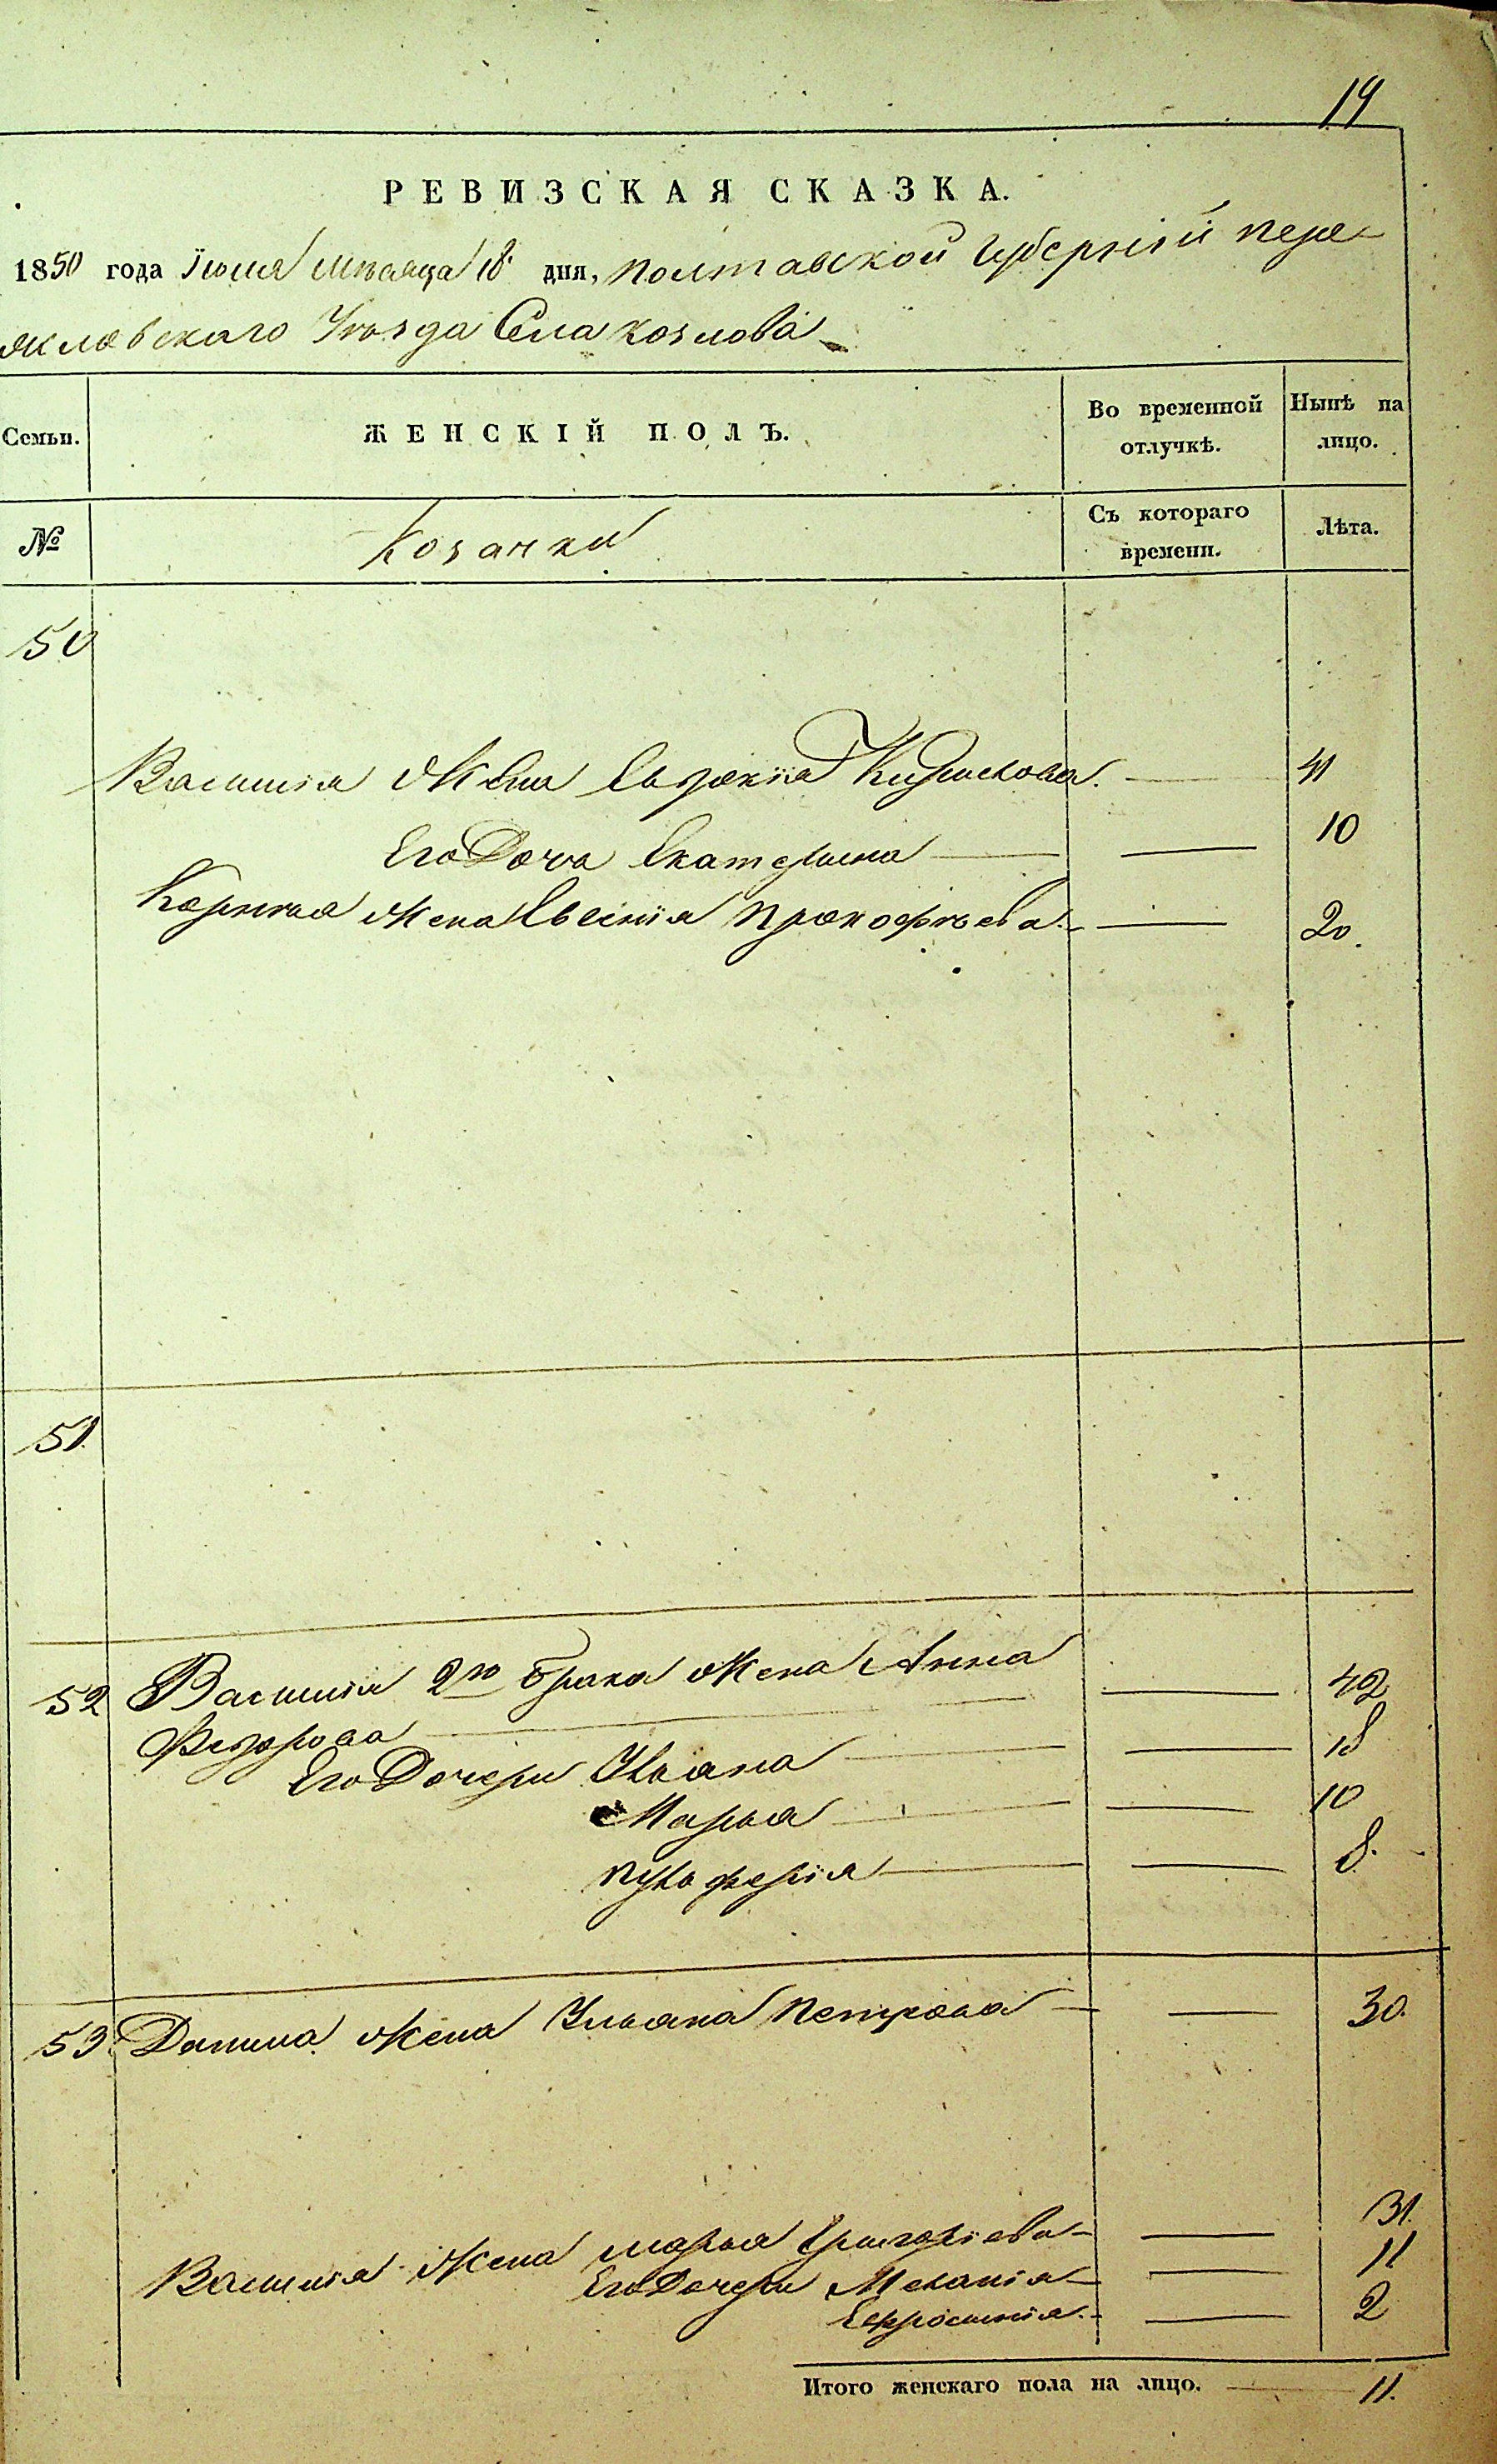 19
РЕВИЗСКАЯ СКАЗКА.
1850 года Июня Мѣсяца 18 дня, Полтавской Губерніи Пере-
яславскаго Уѣзда Села Козлова
Семьи. ЖЕНСКІЙ ПОЛЪ. Во временной отлучкѣ. Нынѣ на лицо.
№ Козачки Съ котораго времени. Лѣта.
50
Василія Жена Евдокія Кирилова. 41
Его Дочь Екатерина 10
Корнѣя Жена Евгенія Прокофьева 20.
51.
52 Василія 2го брака Жена Анна 42
Федорова
Его Дочери Ульяна 18
Марья 10
Пульхерія 8.
53. Данила Жена Ульяна Петрова 30.
Василія Жена Марья Григоріева 31.
Его Дочери Меланія 11
Ефросинія. 2
Итого женскаго пола на лицо. 11.